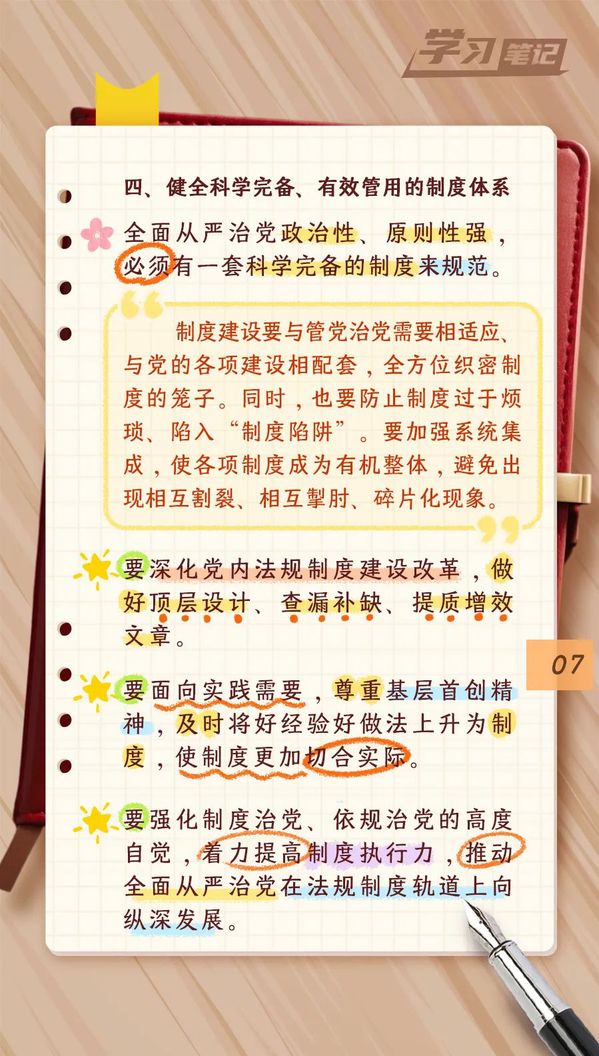 学习笔记
四、健全科学完备、有效管用的制度体系
全面从严治党政治性、原则性强，
必须有一套科学完备的制度来规范。
制度建设要与管党治党需要相适应、
与党的各项建设相配套，全方位织密制
度的笼子。同时，也要防止制度过于烦
琐、陷入“制度陷阱”。要加强系统集
成，使各项制度成为有机整体，避免出
现相互割裂、相互掣肘、碎片化现象。
要深化党内法规制度建设改革，做
好顶层设计、查漏补缺、提质增效
文章。
07
要面向实践需要，尊重基层首创精
神，及时将好经验好做法上升为制
度，使制度更加切合实际。
要强化制度治党、依规治党的高度
自觉，着力提高制度执行力，推动
全面从严治党在法规制度轨道上向
纵深发展。